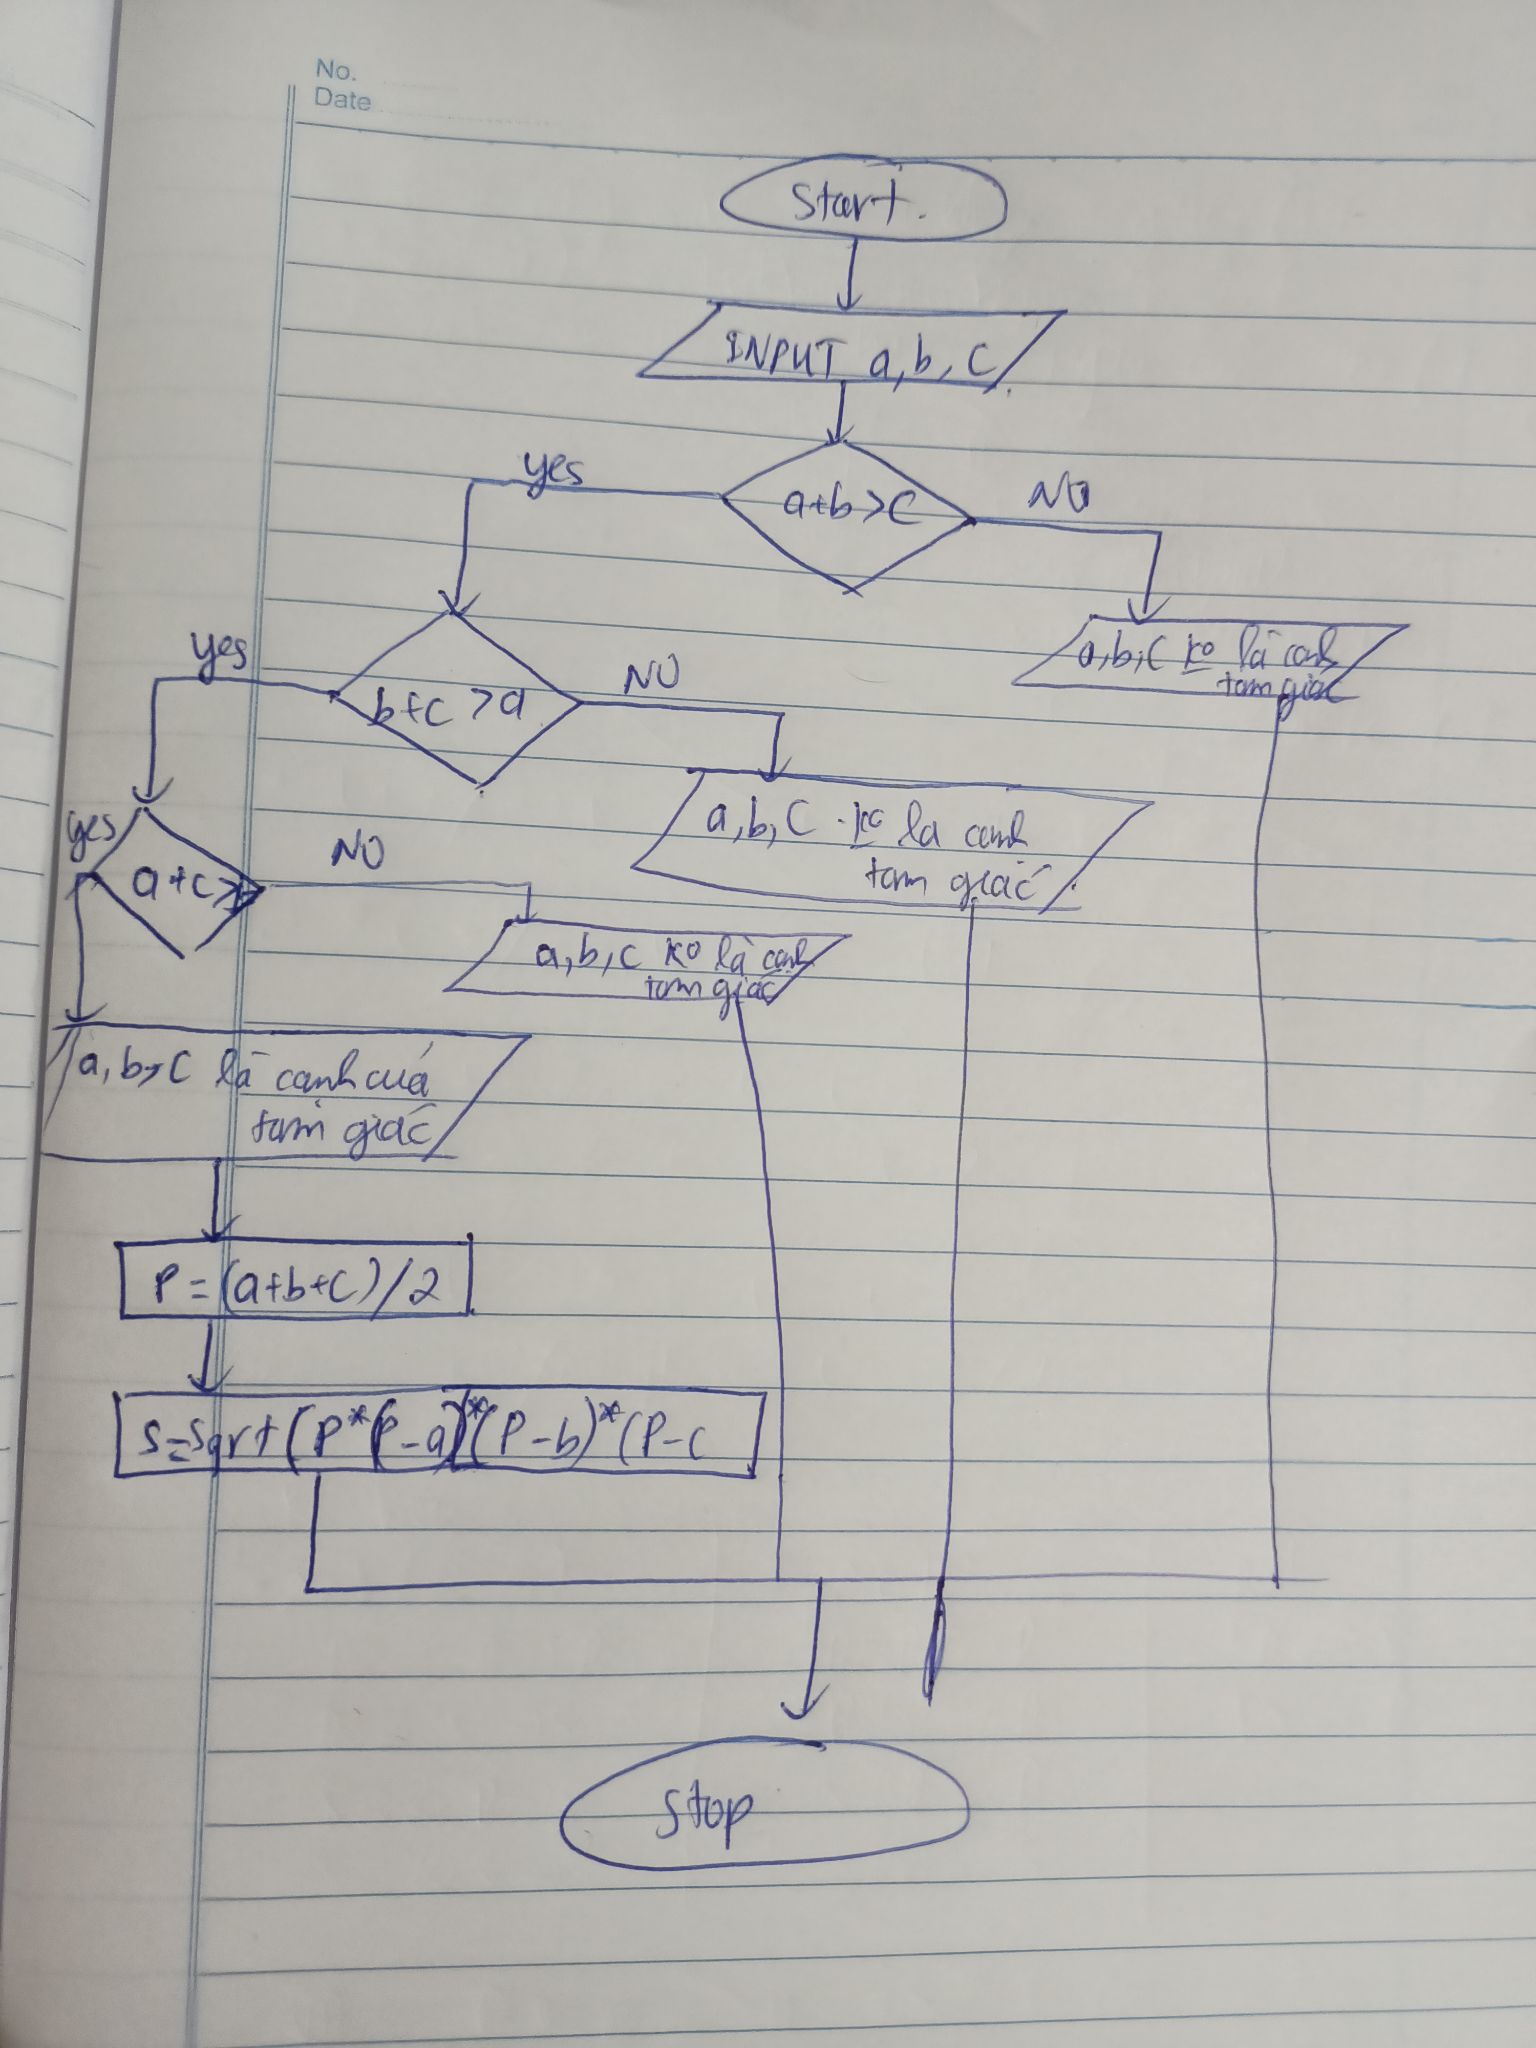 No.
Date
Start.
INPUT a, b, C
yes
a+b>C
NO
a,b,C ko là canh
tam giác
yes
b+c >a
NO
a,b,C ko la canh
tam giác.
yes
a+c>
NO
a,b,c ko là canh
tam giác
a, b, C là canh cuả
tam giác
P = (a+b+c)/2
S=Sqrt(P*(P-a)*(P-b)*(P-c
Stop